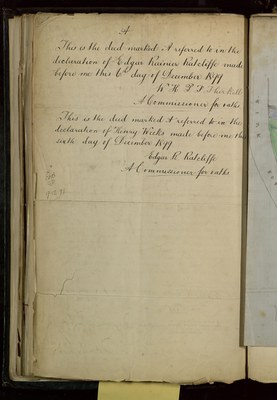 A
This is the deed marked A referred to in the
declaration of Edgar Rainier Ratcliffe made
before me this 6th day of December 1899
W. H. P. F.
A Commissioner for oaths
This is the deed marked A referred to in the
declaration of Henry Weeks made before me the
sixth day of December 1899
Edgar R. Ratcliffe
A Commissioner for oaths